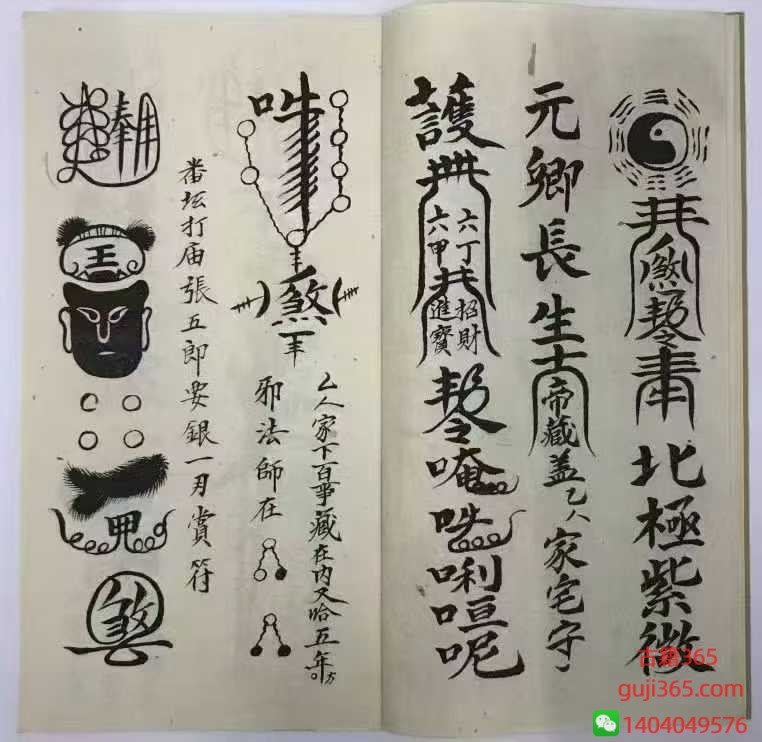 煞
奉
北極紫微
元卿長生士
帝藏盖乙人家宅守
護
六丁
六甲
招財
進寶
唵
吽
唎
呾
呢
乙人家下百事藏在内又哈五年方
吽
煞
邪法師在
番坛打庙張五郎要銀一刃賞符
奉
王
甲
煞
古籍365
guji365.com
1404049576